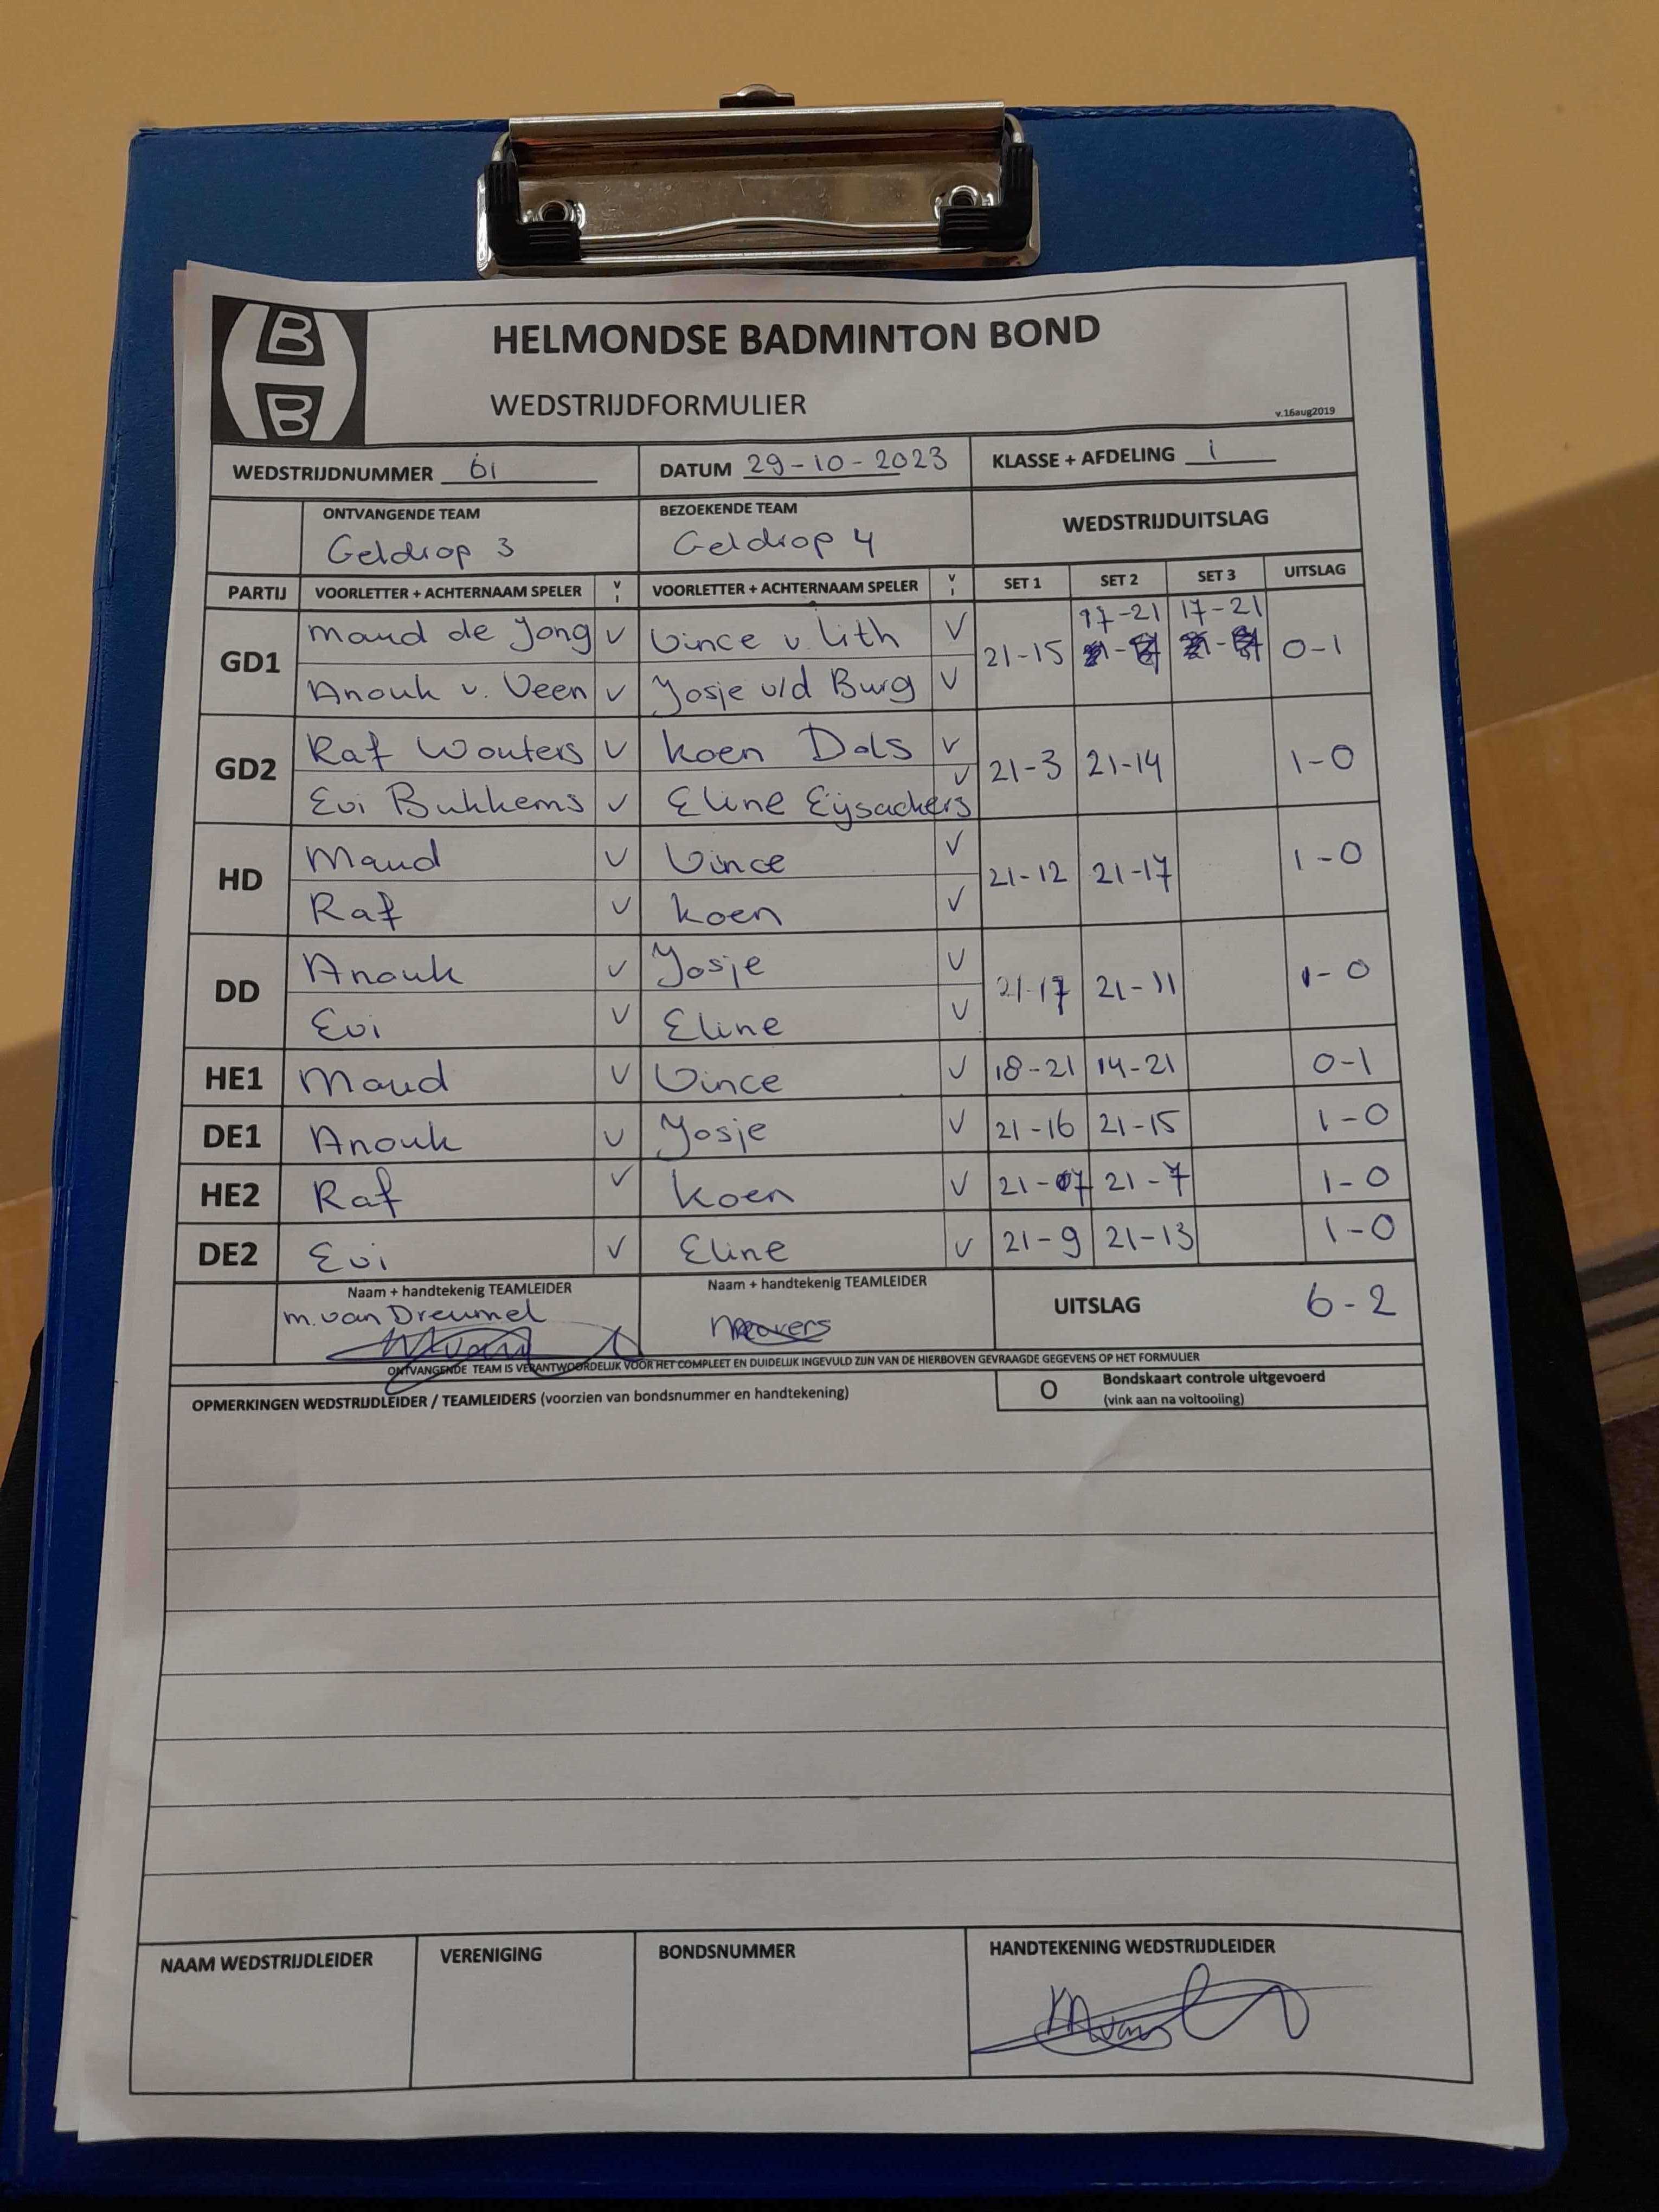 B
B
HELMONDSE BADMINTON BOND
WEDSTRIJDFORMULIER
v.16aug2019
WEDSTRIJDNUMMER 61 DATUM 29-10-2023 KLASSE + AFDELING 1
ONTVANGENDE TEAM BEZOEKENDE TEAM WEDSTRIJDUITSLAG
Geldrop 3 Geldrop 4
PARTIJ VOORLETTER + ACHTERNAAM SPELER V I VOORLETTER + ACHTERNAAM SPELER V I SET 1 SET 2 SET 3 UITSLAG
GD1 Maud de Jong v Vince v. Lith v 21-15 17-21 17-21 0-1
Anouk v. Veen v Josje v/d Burg v
GD2 Raf Wouters v Koen Dols v 21-3 21-14 1-0
Evi Bukkems v Eline Eijsackers v
HD Maud v Vince v 21-12 21-17 1-0
Raf v Koen v
DD Anouk v Josje v 21-17 21-11 1-0
Evi v Eline v
HE1 Maud v Vince v 18-21 14-21 0-1
DE1 Anouk v Josje v 21-16 21-15 1-0
HE2 Raf v Koen v 21-07 21-7 1-0
DE2 Evi v Eline v 21-9 21-13 1-0
Naam + handtekenig TEAMLEIDER Naam + handtekenig TEAMLEIDER UITSLAG 6-2
m. van Dreumel
ONTVANGENDE TEAM IS VERANTWOORDELIJK VOOR HET COMPLEET EN DUIDELIJK INGEVULD ZIJN VAN DE HIERBOVEN GEVRAAGDE GEGEVENS OP HET FORMULIER
OPMERKINGEN WEDSTRIJDLEIDER / TEAMLEIDERS (voorzien van bondsnummer en handtekening) O Bondskaart controle uitgevoerd
(vink aan na voltooiing)
NAAM WEDSTRIJDLEIDER VERENIGING BONDSNUMMER HANDTEKENING WEDSTRIJDLEIDER